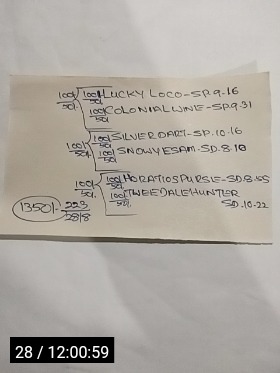 100/50/ 100/50/ LUCKY LOCO-SP.9.16
100/50/ COLONIALWINE-SP.9.31
100/50/ 100/50/ SILVERDART-SP.10.16
100/50/ SNOWYESAM-SD.8.10
100/50/ 100/50/ HORATIOSPURSE-SD.8.55
100/50/ TWEEDALEHUNTER
SD.10-22
1350/- 223
2818
28 / 12:00:59